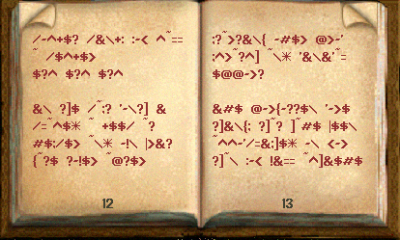 /-^+$? /&\+: :-< ^~==
~ /$^+$>
$?^ $?^ $?^
&\ ?]$ /~:? '-\?] &
/=~^$✳ ~ +$$/ ~?
#$;/$> ~\✳ -!\ |>&?
{~?$ ?-!$> ~@?$>
12
:?~>?&\{ -#$> @>-'
:^>~?^] ~\✳ '&\&'~=
$@@->?
&#$ @->{-??$\ '->$
?]&\{: ?]~? ]~#$ |$$\
~^^-'/=&:]$✳ -\ <->
?]~\ :-< !&== ~^]&$#$
13